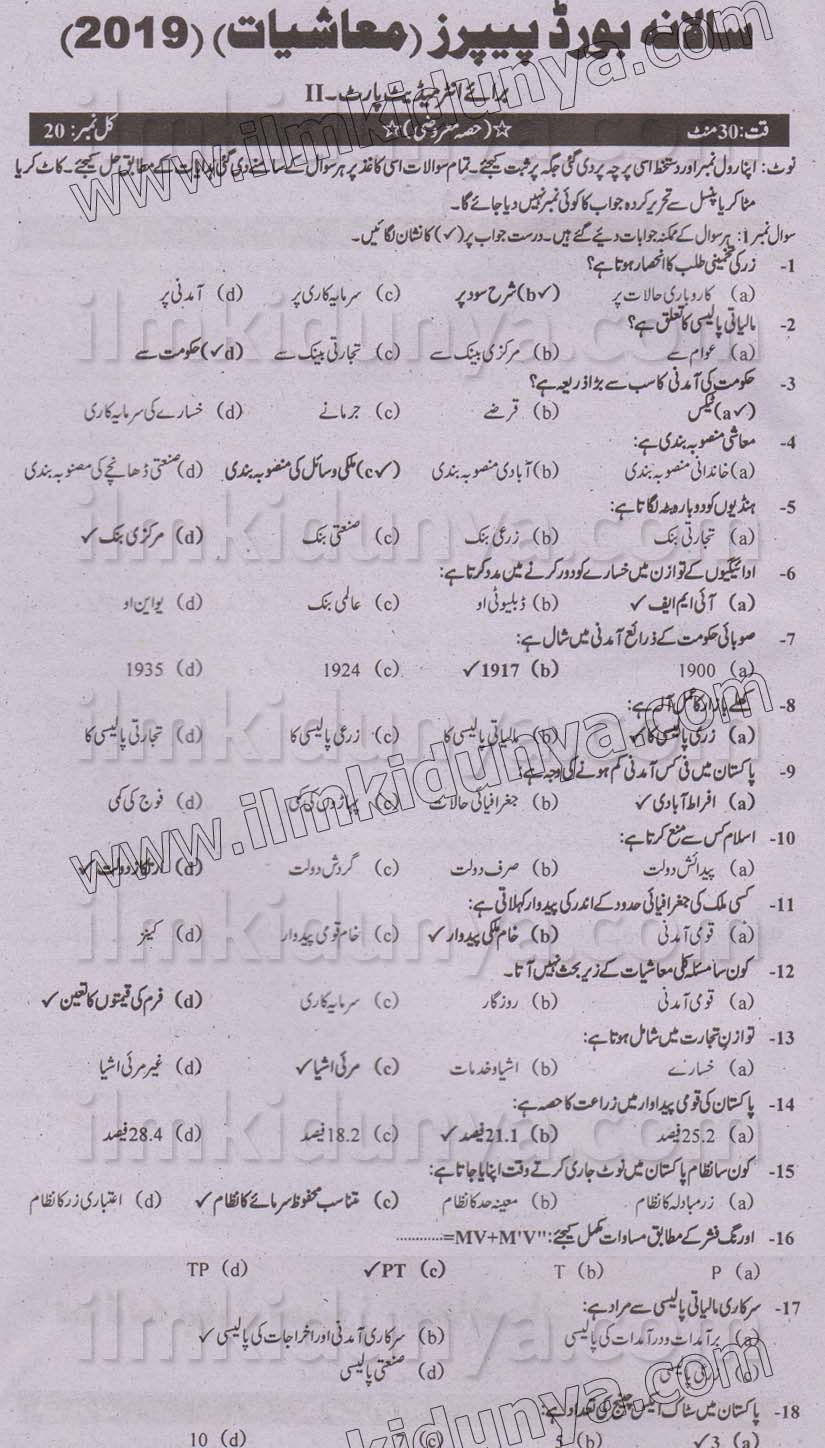 سالانہ بورڈ پیپرز (معاشیات) (2019)
برائے انٹرمیڈیٹ پارٹ۔II
وقت: 30 منٹ ☆(حصہ معروضی)☆ کل نمبر: 20
نوٹ: اپنا رول نمبر اور دستخط اسی پرچہ پر دی گئی جگہ پر ثبت کیجئے۔ تمام سوالات اسی کاغذ پر ہر سوال کے سامنے دی گئی ہدایات کے مطابق حل کیجئے۔ کاٹ کر یا
مٹا کر یا پنسل سے تحریر کردہ جواب کا کوئی نمبر نہیں دیا جائے گا۔
سوال نمبر 1: ہر سوال کے ممکنہ جوابات دیئے گئے ہیں۔ درست جواب پر (✓) کا نشان لگائیں۔
1- زر کی تخمینی طلب کا انحصار ہوتا ہے؟
(a) کاروباری حالات پر (b✓) شرح سود پر (c) سرمایہ کاری پر (d) آمدنی پر
2- مالیاتی پالیسی کا تعلق ہے؟
(a) عوام سے (b) مرکزی بینک سے (c) تجارتی بینک سے (d✓) حکومت سے
3- حکومت کی آمدنی کا سب سے بڑا ذریعہ ہے؟
(a✓) ٹیکس (b) قرضے (c) جرمانے (d) خسارے کی سرمایہ کاری
4- معاشی منصوبہ بندی ہے:
(a) خاندانی منصوبہ بندی (b) آبادی منصوبہ بندی (c✓) ملکی وسائل کی منصوبہ بندی (d) صنعتی ڈھانچے کی منصوبہ بندی
5- ہنڈیوں کو دوبارہ بٹہ لگاتا ہے:
(a) تجارتی بنک (b) زرعی بنک (c) صنعتی بنک (d) مرکزی بنک ✓
6- ادائیگیوں کے توازن میں خسارے کو دور کرنے میں مدد کرتا ہے:
(a) آئی ایم ایف ✓ (b) ڈبلیو ٹی او (c) عالمی بنک (d) یو این او
7- صوبائی حکومت کے ذرائع آمدنی میں شال ہے:
(a) 1900 (b) 1917✓ (c) 1924 (d) 1935
8- کھلے بازار کا عمل آلہ ہے:
(a) زری پالیسی کا ✓ (b) مالیاتی پالیسی کا (c) زرعی پالیسی کا (d) تجارتی پالیسی کا
9- پاکستان میں فی کس آمدنی کم ہونے کی وجہ ہے:
(a) افراط آبادی ✓ (b) جغرافیائی حالات (c) پہاڑوں کی کمی (d) فوج کی کمی
10- اسلام کس سے منع کرتا ہے:
(a) پیدائش دولت (b) صرف دولت (c) گردش دولت (d) ارتکاز دولت ✓
11- کسی ملک کی جغرافیائی حدود کے اندر کی پیدوار کہلاتی ہے:
(a) قومی آمدنی (b) خام ملکی پیدوار ✓ (c) خام قومی پیدوار (d) کینز
12- کون سا مسئلہ کلی معاشیات کے زیر بحث نہیں آتا۔
(a) قومی آمدنی (b) روزگار (c) سرمایہ کاری (d) فرم کی قیمتوں کا تعین ✓
13- توازنِ تجارت میں شامل ہوتا ہے:
(a) خسارے (b) اشیا و خدمات (c) مرئی اشیا ✓ (d) غیر مرئی اشیا
14- پاکستان کی قومی پیداوار میں زراعت کا حصہ ہے:
(a) 25.2 فیصد (b) 21.1 فیصد ✓ (c) 18.2 فیصد (d) 28.4 فیصد
15- کون سا نظام پاکستان میں نوٹ جاری کرتے وقت اپنایا جاتا ہے:
(a) زر مبادلہ کا نظام (b) معینہ حد کا نظام (c) متناسب محفوظ سرمائے کا نظام ✓ (d) اعتباری زر کا نظام
16- اورنگ فشر کے مطابق مساوات مکمل کیجئے: MV+M'V"=............
(a) P (b) T (c) PT✓ (d) TP
17- سرکاری مالیاتی پالیسی سے مراد ہے:
(a) برآمدات و درآمدات کی پالیسی (b) سرکاری آمدنی اور اخراجات کی پالیسی ✓
(c) زرعی پالیسی (d) صنعتی پالیسی
18- پاکستان میں سٹاک ایکس چینج کی تعداد ہے:
(a) 3✓ (b) 5 (c) 7 (d) 10
www.ilmkidunya.com
www.ilmkidunya.com
ilmkidunya.com